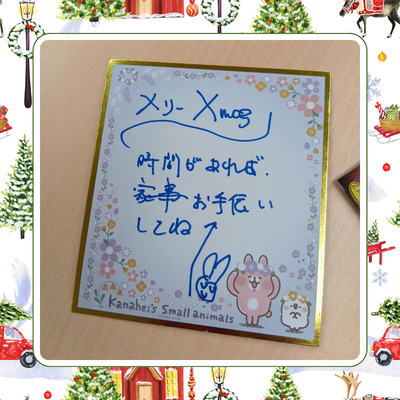 メリー Xmas
時間があれば、
家事お手伝い
してね
Kanahei's Small animals